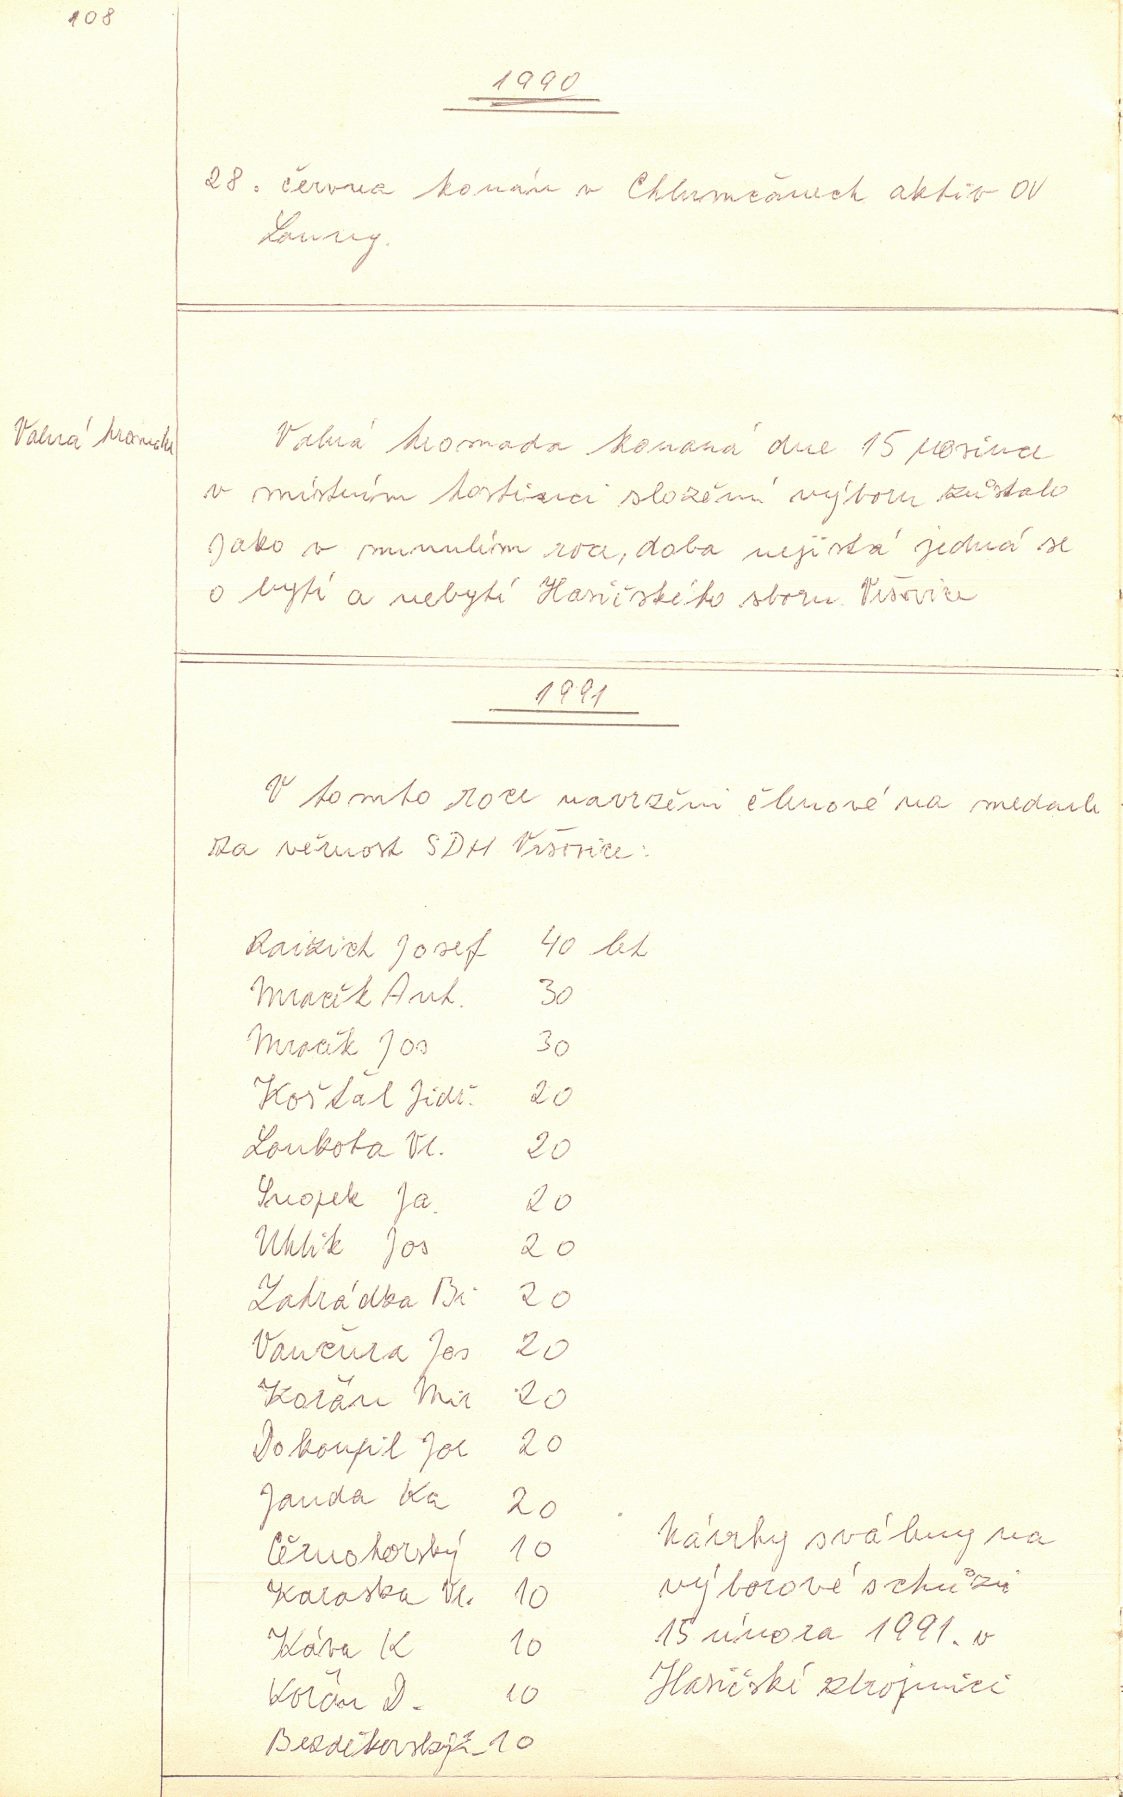 108
1990
28. června konán v Chlumčanech aktiv OV
Louny.
Valná hromada
Valná hromada konaná dne 15 prosince
v místním hostinci složení výboru zůstalo
jako v minulém roce, doba nejistá jedná se
o bytí a nebytí Hasičského sboru Vršovice
1991
V tomto roce navrženi členové na medaile
za věrnost SDH Vršovice:
Raizich Josef 40 let
Mracík Ant. 30
Mracík Jos 30
Košťál Jidř. 20
Loukota Vl. 20
Snopek Ja. 20
Uhlik Jos 20
Zahrádka Br 20
Vančura Jos 20
Korán Mir 20
Dokoupil Jos 20
Janda Ka 20
Černohorský 10
Karaska Vl. 10
Káva K 10
Korán D. 10
Bezděkovský Z. 10
Návrhy sváleny na
výborové schůzi
15 února 1991. v
Hasičské zbrojnici